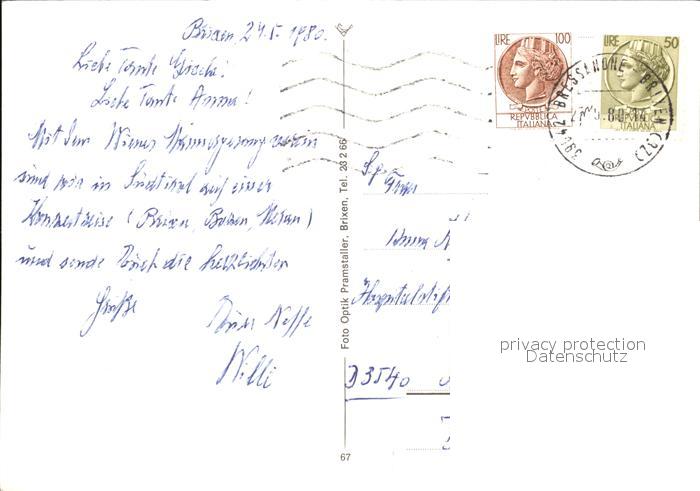 Brixen, 24.5.1980.
Liebe Tante Gisela!
Liebe Tante Anna!
Mit dem Wiener Männergesangverein
sind wir in Südtirol auf einer
Konzertreise (Brixen, Bozen, Meran)
und sende Euch die herzlichsten
Grüße
Euer Neffe
Willi
Foto Optik Pramstaller, Brixen, Tel. 23 2 66
67
LIRE 100
REPVBBLICA
ITALIANA
LIRE 50
REPVBBLICA
ITALIANA
39042 BRESSANONE (BRIXEN) (BZ)
Frau
Anna
D 3540
privacy protection
Datenschutz